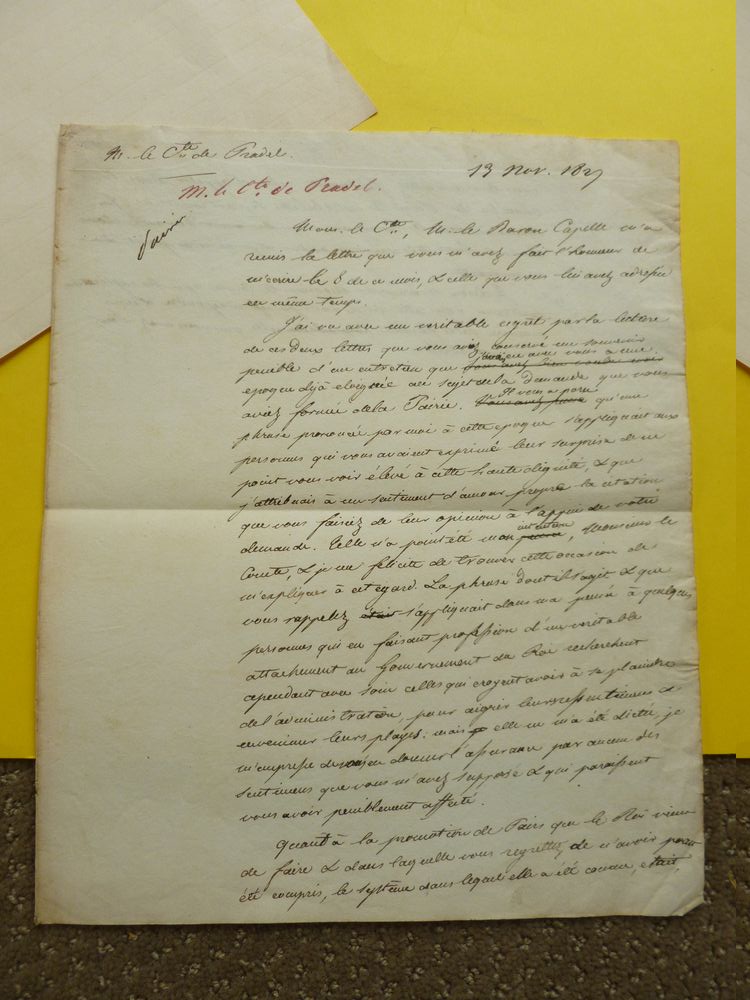 M. le Cte de Pradel.
13 Nov. 1827
M. le Cte de Pradel.
Pairie
Mons. le Cte, M. le Baron Capelle m'a
remis la lettre que vous m'avez fait l'honneur de
m'écrire le 8 de ce mois, & celle que vous lui avez adressée
en même temps.
J'ai vu avec un veritable regret par la lecture
de ces deux lettres que vous aviez conservé un souvenir
penible d'un entretien que j'avais eu avec vous à une
epoque déjà eloignée au sujet de la demande que vous
aviez formée de la Pairie. Il vous a paru
Vous avez pensé qu'une
phrase prononcée par moi à cette epoque s'appliquait aux
personnes qui vous avaient exprimé leur surprise de ne
point vous voir élevé à cette haute dignité, & que
j'attribuais à un sentiment d'amour propre la citation
que vous faisiez de leur opinion à l'appui de votre
demande. Telle n'a point été mon intention, Monsieur le
Comte, & je me félicite de trouver cette occasion de
m'expliquer à cet egard. La phrase dont il s'agit & que
vous rappelez était s'appliquait dans ma pensée à quelques
personnes qui en faisant profession d'un veritable
attachement au Gouvernement du Roi recherchent
cependant avec soin celles qui croyent avoir à se plaindre
de l'administration, pour aigrir leurs ressentimens &
envenimer leurs playes: mais elle ne m'a été dictée, je
m'empresse de vous en donner l'assurance par aucun des
sentimens que vous m'avez supposé & qui paraissent
vous avoir peniblement affecté.
Quant à la promotion de Pairs que le Roi vient
de faire & dans laquelle vous regrettez de n'avoir point
été compris, le système dans lequel elle a été conçue, était,